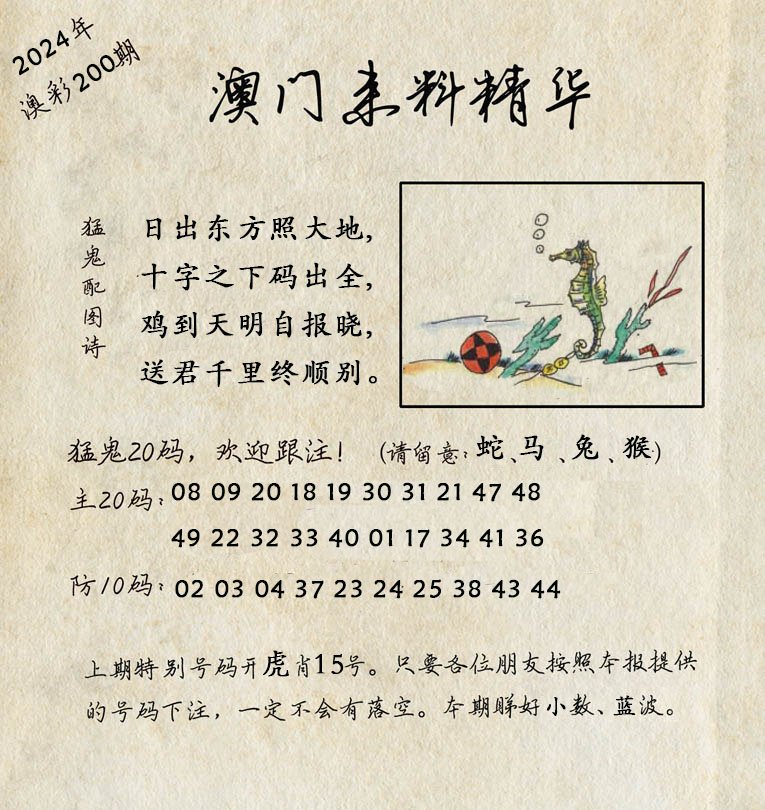 2024年
澳彩200期
澳门来料精华
猛鬼配图诗
日出东方照大地，
十字之下码出全，
鸡到天明自报晓，
送君千里终顺别。
猛鬼20码，欢迎跟注！（请留意：蛇、马、兔、猴）
主20码：08 09 20 18 19 30 31 21 47 48
49 22 32 33 40 01 17 34 41 36
防10码：02 03 04 37 23 24 25 38 43 44
上期特别号码开虎肖15号。只要各位朋友按照本报提供
的号码下注，一定不会有落空。本期睇好小数、蓝波。